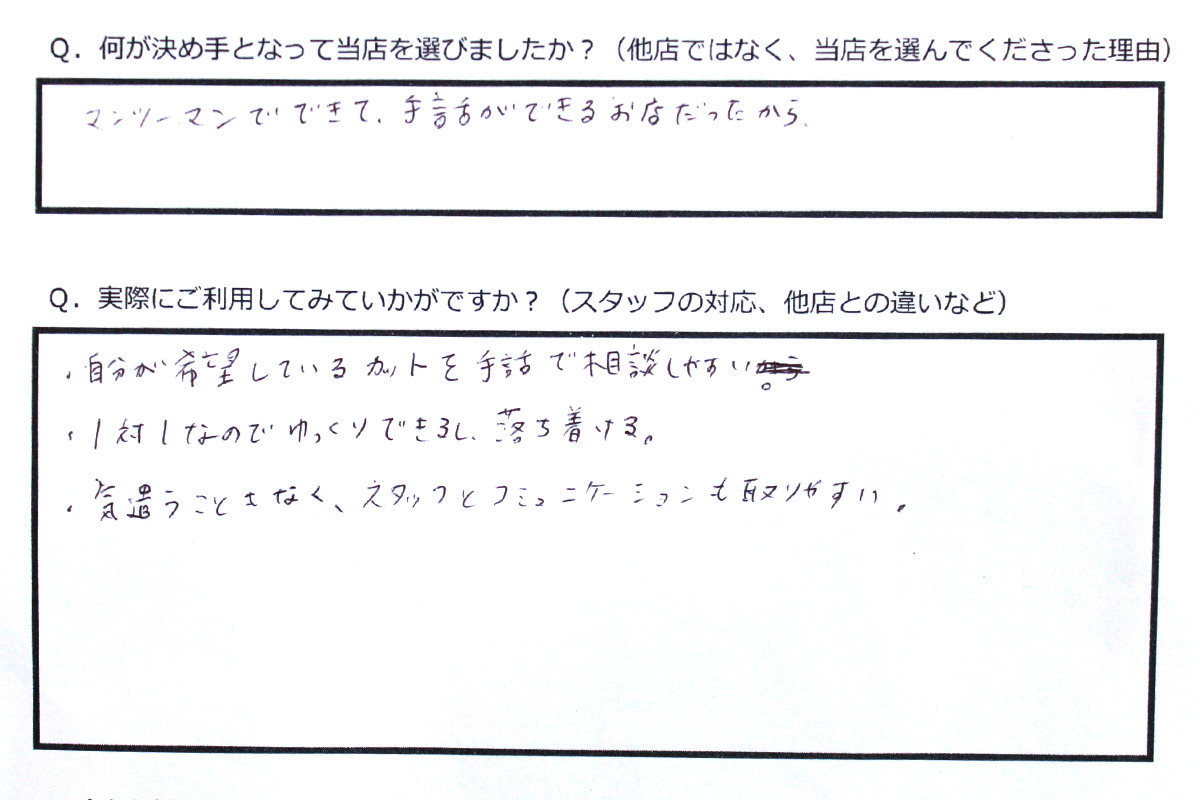 Q．何が決め手となって当店を選びましたか？（他店ではなく、当店を選んでくださった理由）
マンツーマンでできて、手話ができるお店だったから、
Q．実際にご利用してみていかがですか？（スタッフの対応、他店との違いなど）
・自分が希望しているカットを手話で相談しやすい。
・1対1なのでゆっくりできるし、落ち着ける。
・気遣うこともなく、スタッフとコミュニケーションも取りやすい。